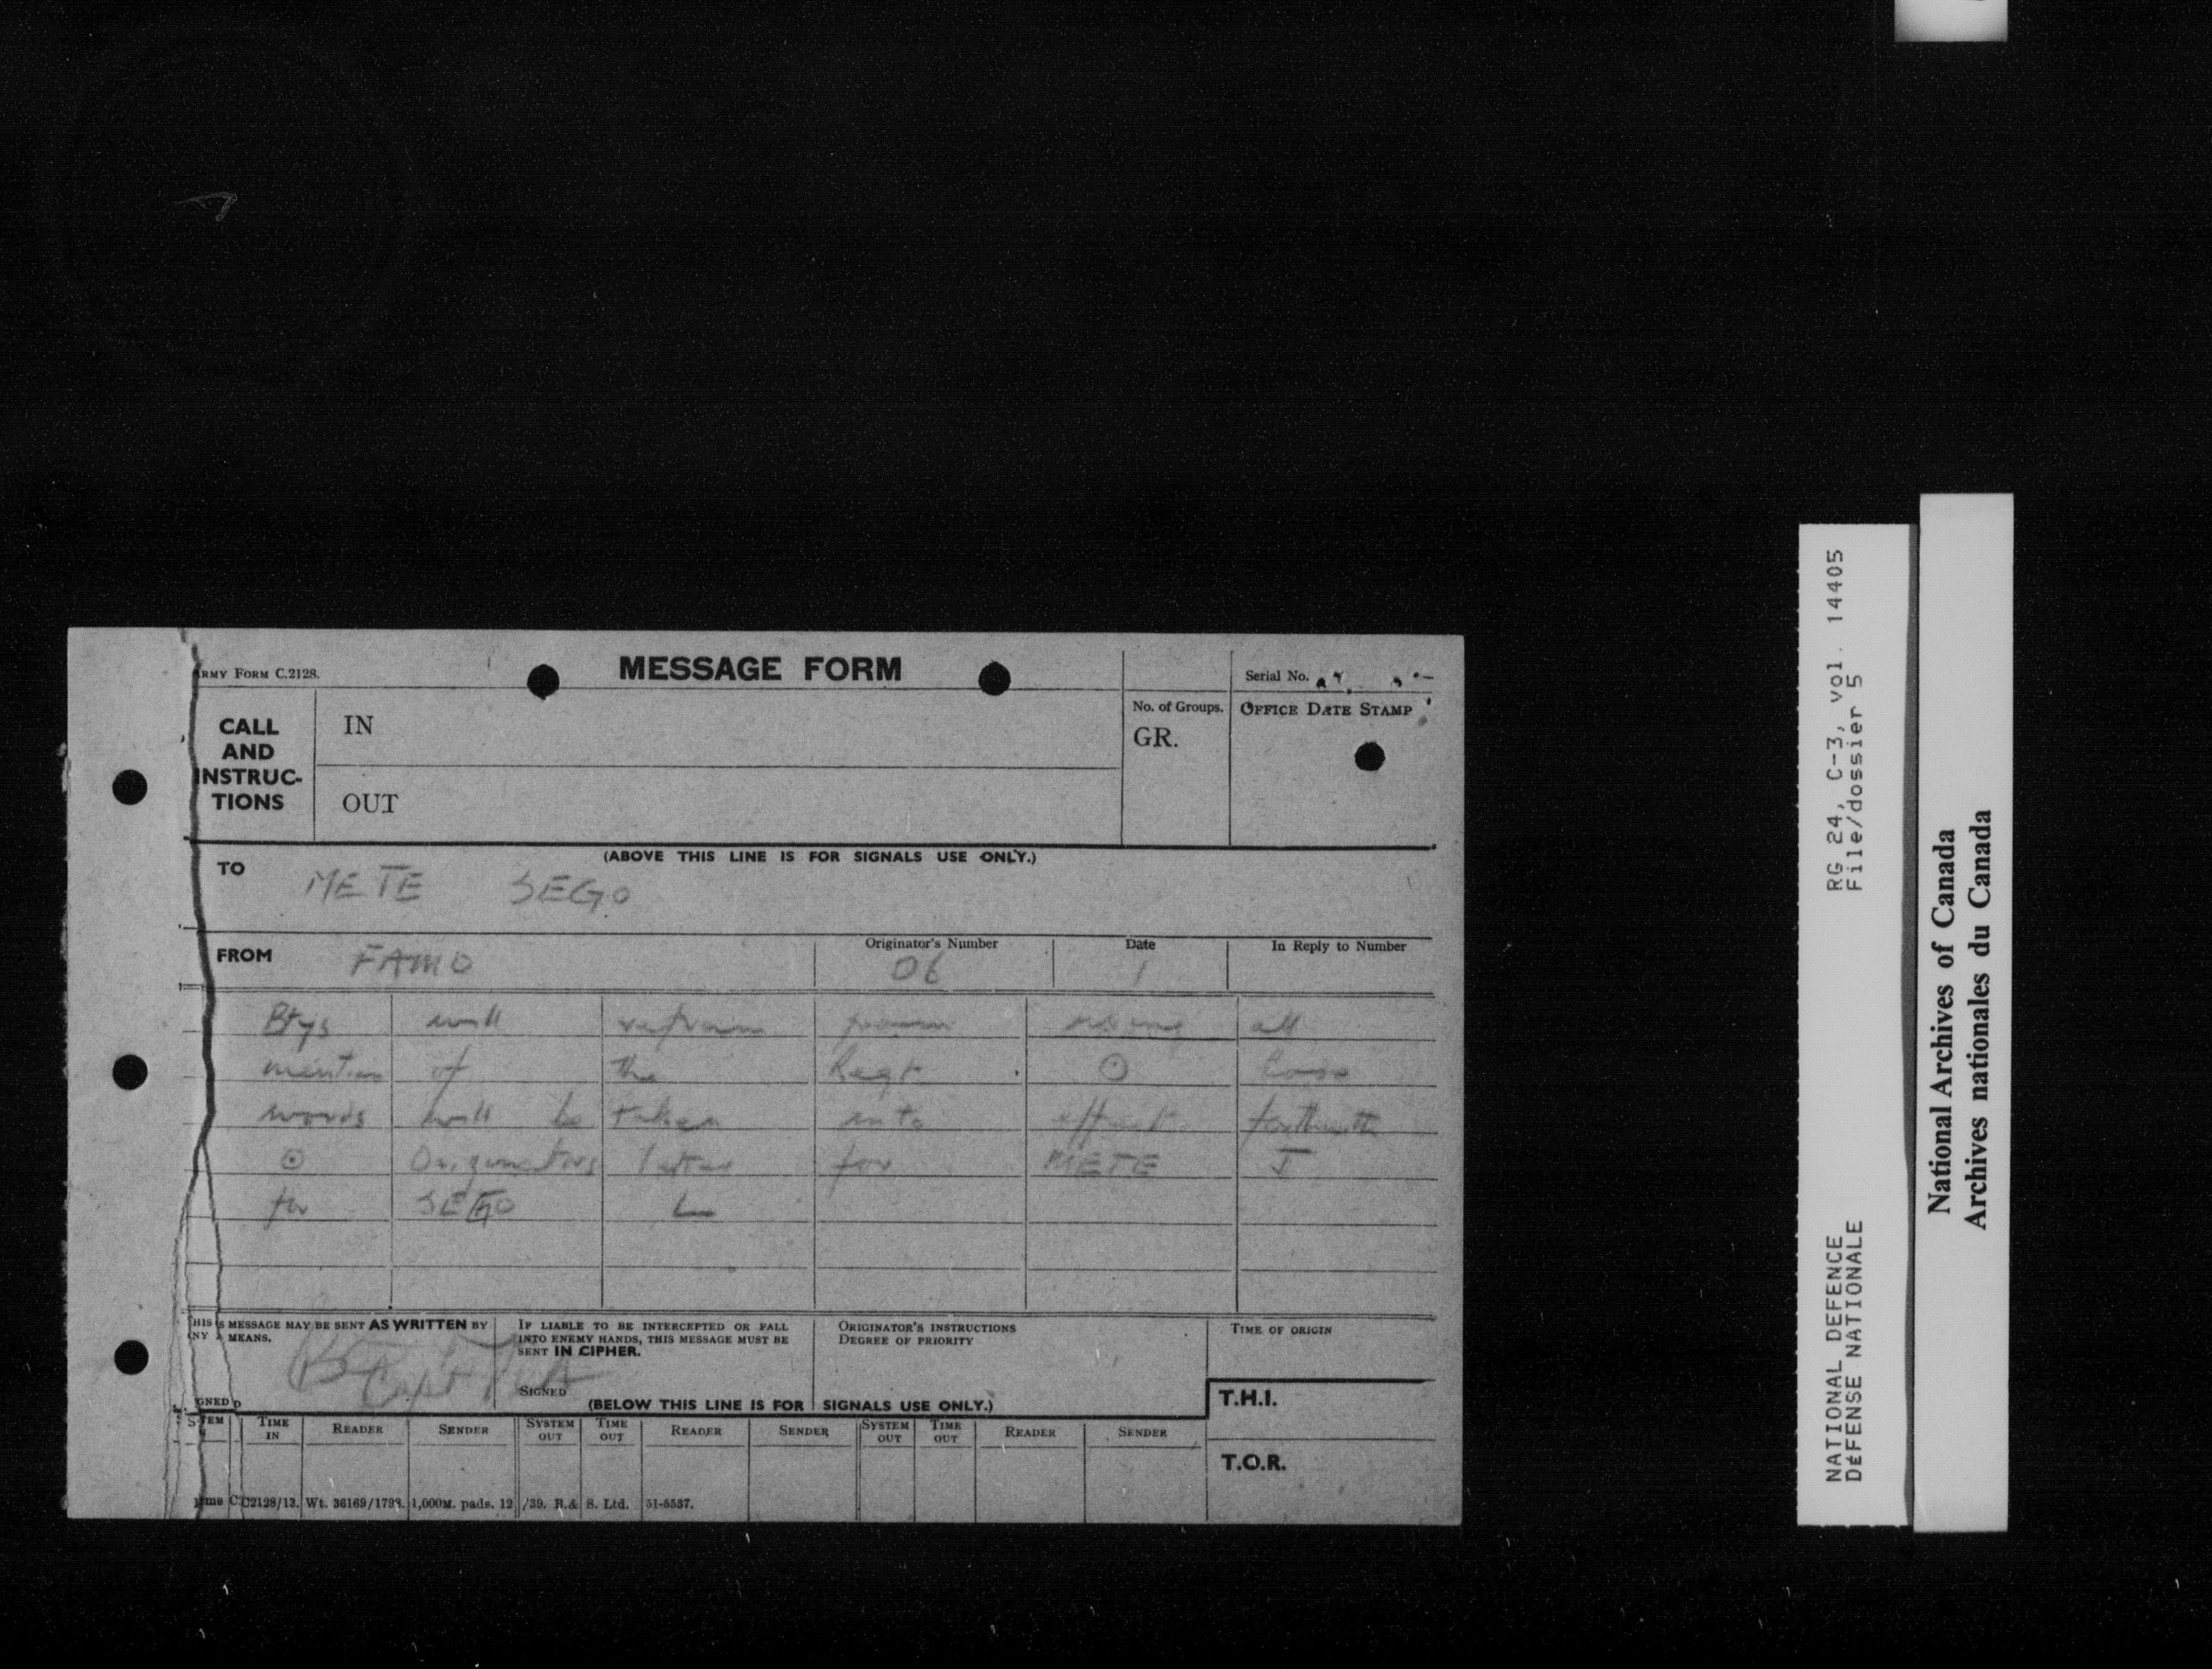 ARMY FORM C.2128.
MESSAGE FORM
Serial No.
CALL AND INSTRUC-TIONS
IN
OUT
No. of Groups.
GR.
OFFICE DATE STAMP
(ABOVE THIS LINE IS FOR SIGNALS USE ONLY.)
TO METE SEGO
FROM FAMO
Originator's Number 06
Date 1
In Reply to Number
Btys will refrain from using all
mention of the Regt ⊙ Code
words will be taken into effect forthwith
⊙ Originators letter for METE J
for SEGO L
THIS MESSAGE MAY BE SENT AS WRITTEN BY
ANY MEANS.
IF LIABLE TO BE INTERCEPTED OR FALL
INTO ENEMY HANDS, THIS MESSAGE MUST BE
SENT IN CIPHER.
ORIGINATOR'S INSTRUCTIONS
DEGREE OF PRIORITY
TIME OF ORIGIN
Capt
SIGNED
SIGNED
(BELOW THIS LINE IS FOR SIGNALS USE ONLY.)
T.H.I.
SYSTEM IN TIME IN READER SENDER SYSTEM OUT TIME OUT READER SENDER SYSTEM OUT TIME OUT READER SENDER
T.O.R.
C2128/13. Wt. 36169/1798. 1,000M. pads. 12/39. R.& S. Ltd. 51-5537.
NATIONAL DEFENCE RG 24, C-3, vol. 14405
DÉFENSE NATIONALE File/dossier 5
National Archives of Canada
Archives nationales du Canada